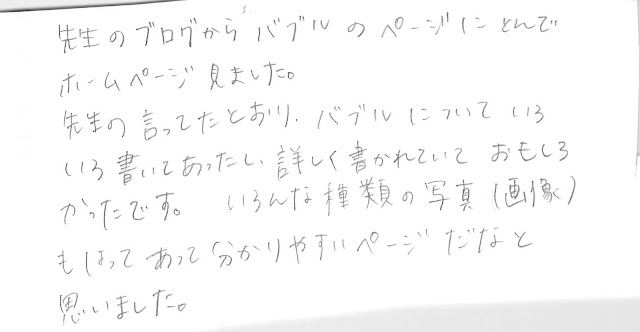 先生のブログからバブルのページにとんで
ホームページ見ました。
先生の言ってたとおり、バブルについていろ
いろ書いてあったし、詳しく書かれていておもしろ
かったです。いろんな種類の写真(画像)
もはってあって分かりやすいページだなと
思いました。